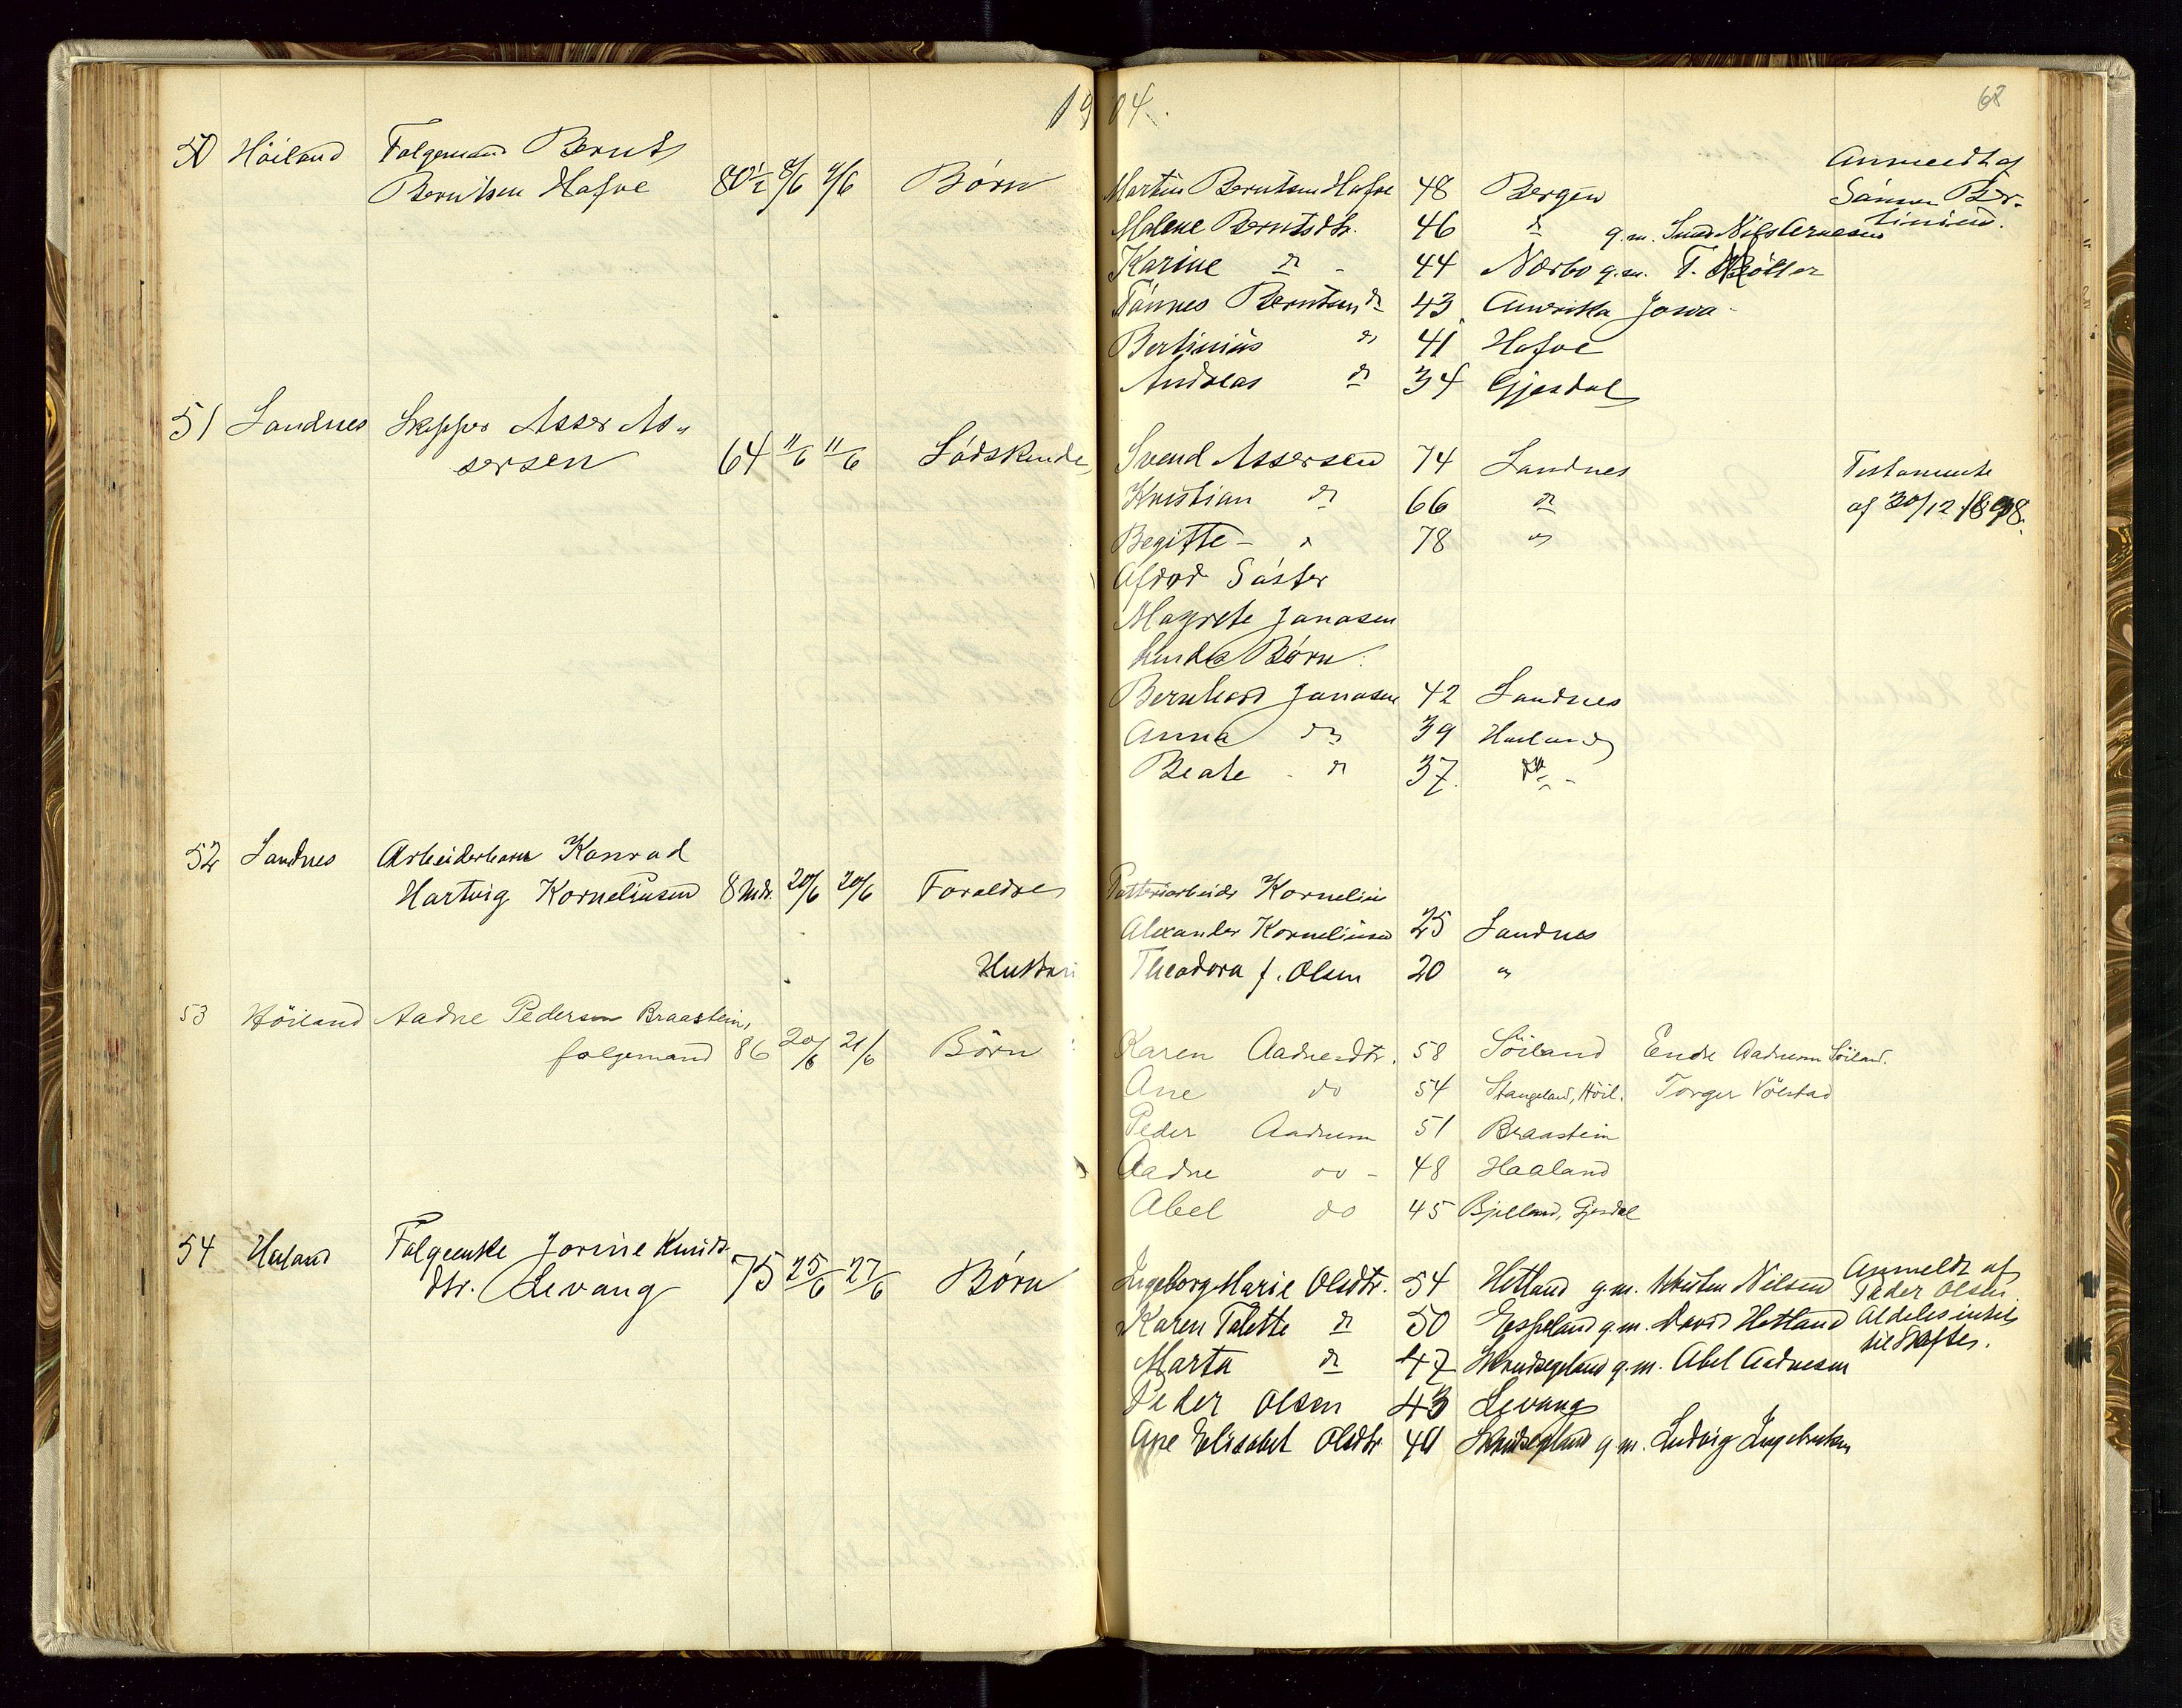 1904.
68
50 Höiland Folgemand Bernt
Berntsen Hafve 80½ 8/6 9/6 Börn
Martin Berntsen Hafve 48 Bergen
Anmeldt af
Sönnen Ber-
tinius.
Malene Berntsdtr. 46 do g.m. Smed Nils Arnesen
Karine do - 44 Nærbo g.m. T. Möller
Tönnes Berntsen do 43 Amerika Jowa
Bertinius do 41 Hafve
Andreas do 34 Gjesdal
51 Sandnes Skipper Asser As-
sersen 64 11/6 11/6 Södskende
Svend Assersen 74 Sandnes
Testamente
af 30/12 1898.
Kristian do 66 do
Begitte - " 78 do
Afdød Söster
Magrete Jonasen
hendes Börn:
Bernhard Jonasen 42 Sandnes
Anna do 39 Haaland
Beate - do 37 do -
52 Sandnes Arbeiderbarn Konrad
Hartvig Korneliusen 8 Mdr. 20/6 20/6 Forældre
Potteriarbeider Kornelius
Alexander Korneliusen 25 Sandnes
Hustru Theodora f. Olsen 20 "
53 Höiland Aadne Pedersen Braastein,
folgemand 86 20/6 21/6 Börn
Karen Aadnesdtr. 58 Söiland Endre Aadnesen Söiland.
Ane do 54 Stangeland, Höil. Torger Völstad
Peder Aadnesen 51 Braastein
Aadne do - 48 Haaland
Abel do 45 Bjelland, Gjesdal
54 Høiland Folgeenke Jorine Knuds-
dtr. Levang 75 25/6 27/6 Börn
Ingeborg Marie Olsdtr. 54 Hetland g.m. Nilsen
Anmeldt af
Peder Olsen.
Aldeles intet
til Skifte.
Karen Talette do 50 Espeland g.m. David Hetland
Marta do 47 Skrudsegeland g.m. Abel Aadnesen
Peder Olsen 43 Levang
Ane Elisabet Olsdtr 40 Skrudsegeland g.m. Ludvig Ingebretsen